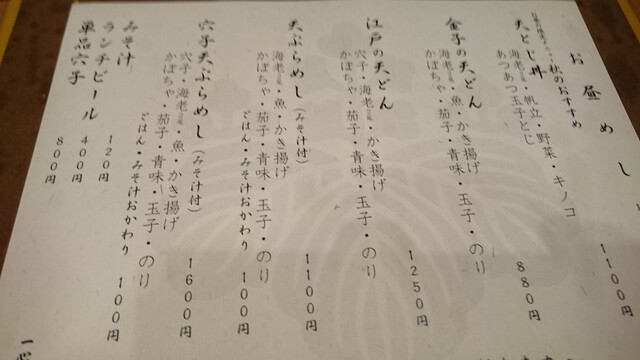 お昼めし
秋のおすすめ
天とじ丼
海老二尾・帆立・野菜・キノコ
あつあつ玉子とじ
1100円
金子の天どん
海老二尾・魚・かき揚げ
かぼちゃ・茄子・青味・玉子・のり
880円
江戸の天どん
穴子・海老二尾・かき揚げ
かぼちゃ・茄子・青味・玉子・のり
1250円
天ぷらめし(みそ汁付)
海老二尾・魚・かき揚げ
かぼちゃ・茄子・青味・玉子・のり
1100円
ごはん・みそ汁おかわり 100円
穴子天ぷらめし(みそ汁付)
穴子・海老二尾・魚・かき揚げ
かぼちゃ・茄子・青味・玉子・のり
1600円
ごはん・みそ汁おかわり 100円
みそ汁 120円
ランチビール 400円
単品穴子 800円